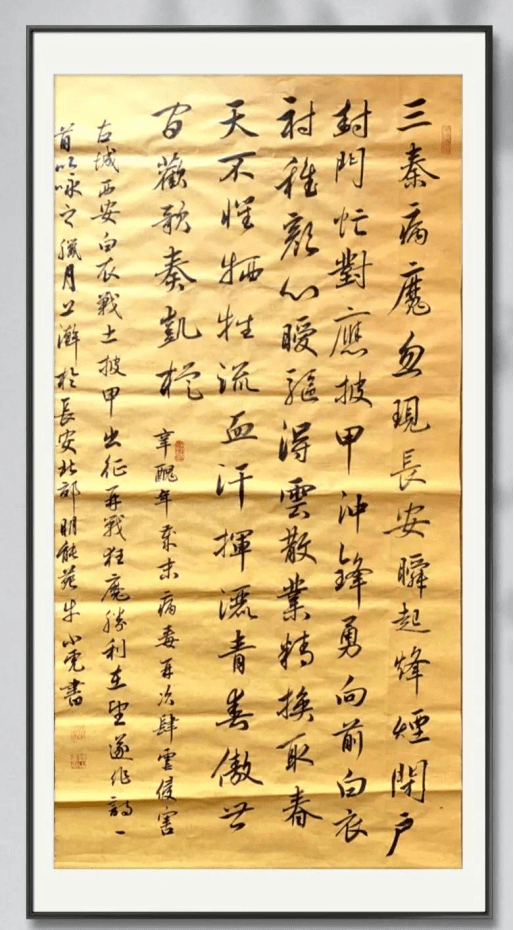 三秦病魔忽現長安瞬起烽煙閉戶
封門忙對應披甲沖鋒勇向前白衣
衬稚颜心暧驅得雲散業精换取春
天不惧牺牲流血汗揮灑青春傲世
間歡歌奏凱旋
辛醜年歲末病毒再次肆虐侵害
古城西安白衣戰士披甲出征再戰狂魔勝利在望遂作詩一
首以咏之臘月上澣於長安北部明能苑牛小虎書